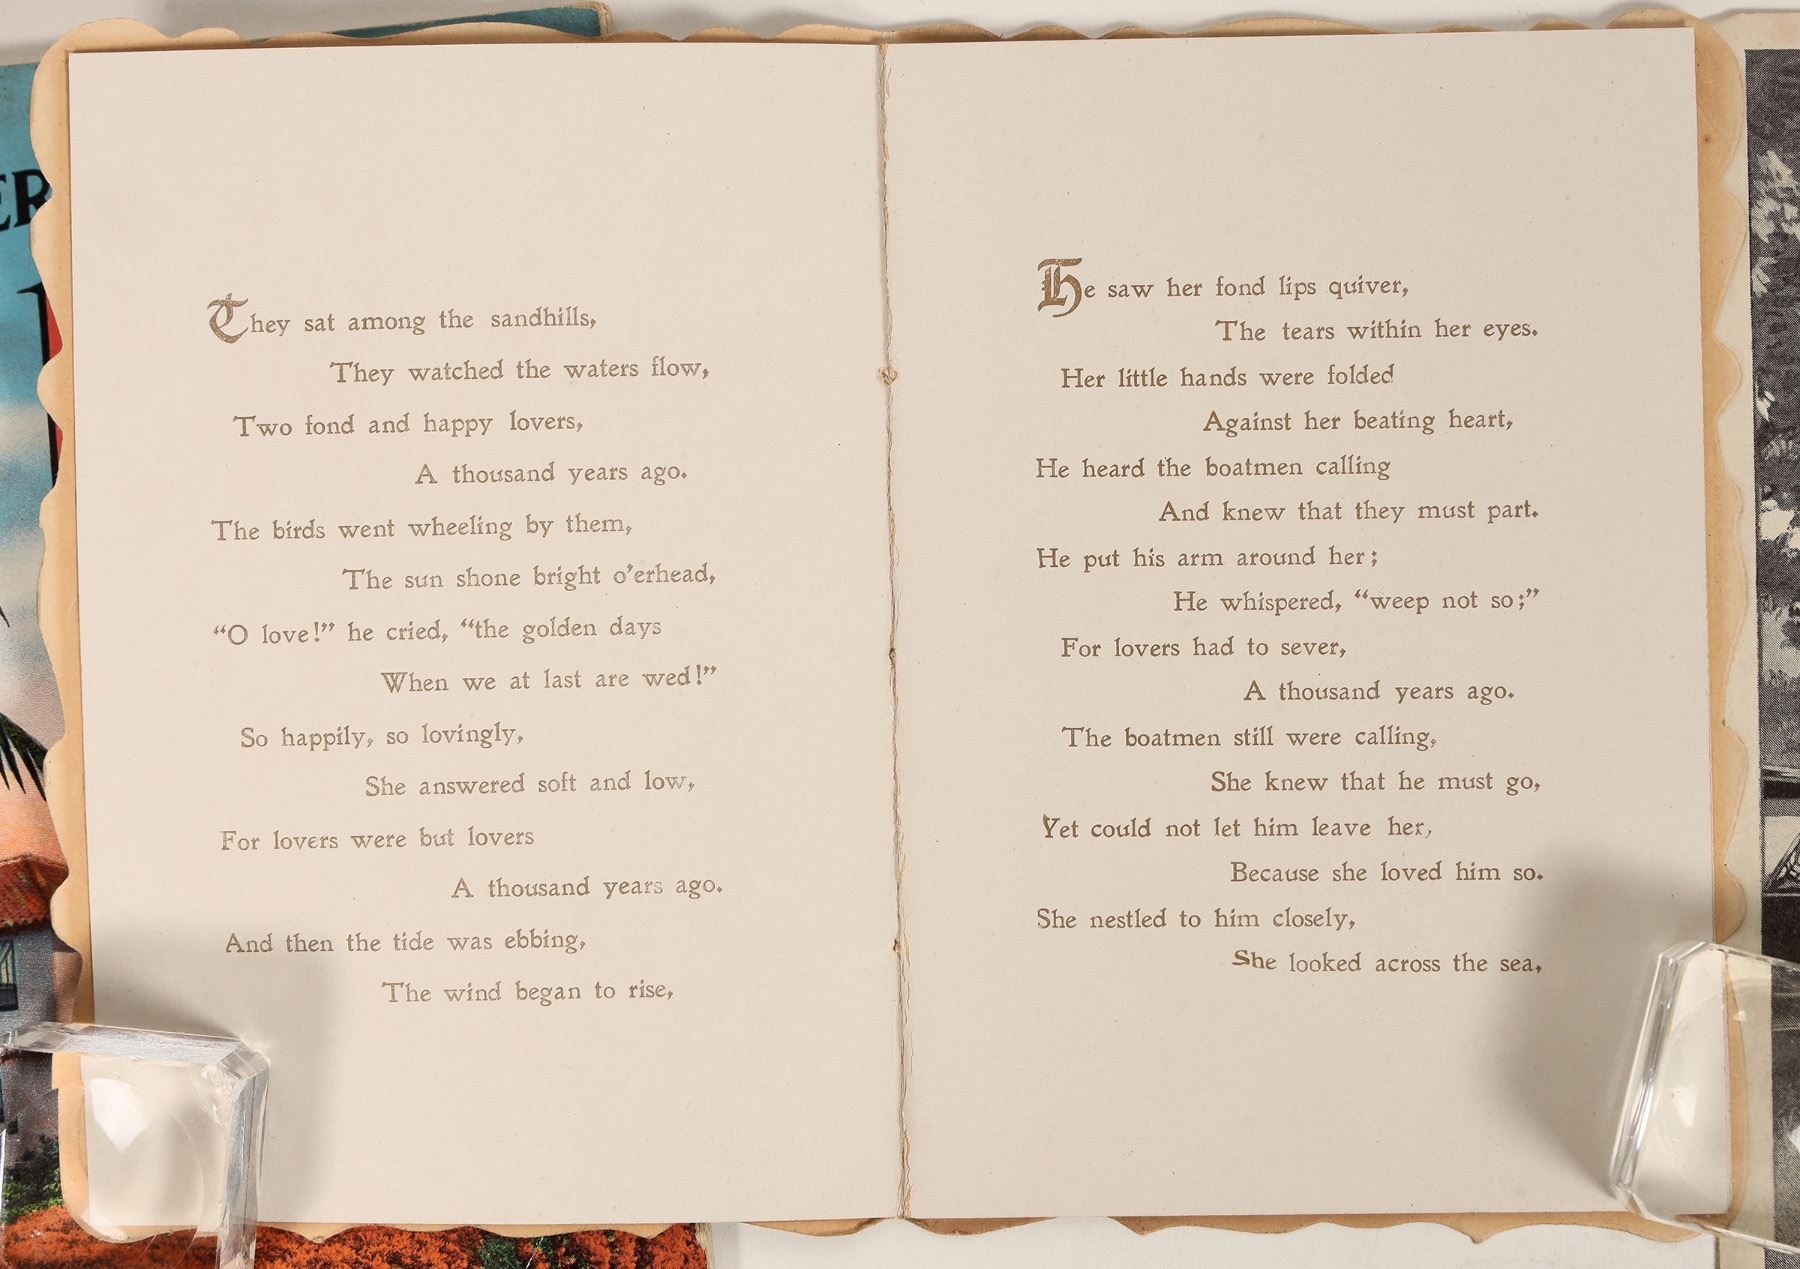 ER
They sat among the sandhills,
They watched the waters flow,
Two fond and happy lovers,
A thousand years ago.
The birds went wheeling by them,
The sun shone bright o'erhead,
"O love!" he cried, "the golden days
When we at last are wed!"
So happily, so lovingly,
She answered soft and low,
For lovers were but lovers
A thousand years ago.
And then the tide was ebbing,
The wind began to rise,
He saw her fond lips quiver,
The tears within her eyes.
Her little hands were folded
Against her beating heart,
He heard the boatmen calling
And knew that they must part.
He put his arm around her;
He whispered, "weep not so;"
For lovers had to sever,
A thousand years ago.
The boatmen still were calling,
She knew that he must go,
Yet could not let him leave her,
Because she loved him so.
She nestled to him closely,
She looked across the sea,